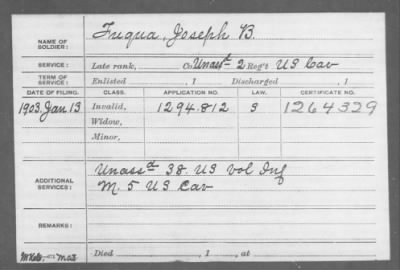 NAME OF SOLDIER: Fuqua, Joseph B.
SERVICE: Late rank, Co. Unass'd 2 Reg't US Cav
TERM OF SERVICE: Enlisted , 1 Discharged , 1
DATE OF FILING. CLASS. APPLICATION NO. LAW. CERTIFICATE NO.
1903 Jan 13 Invalid, 1294.812 S 1264329
Widow,
Minor,
ADDITIONAL SERVICES: Unassd 38 US Vol Inf
M. 5 US Cav
REMARKS:
Died , 1 , at